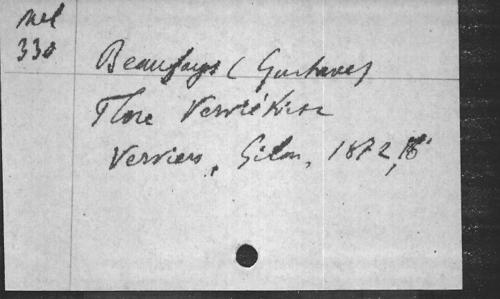 Mel
330
Beaufays (Gustave)
Flore Verviétoise
Verviers, Gilon, 1872, 16°